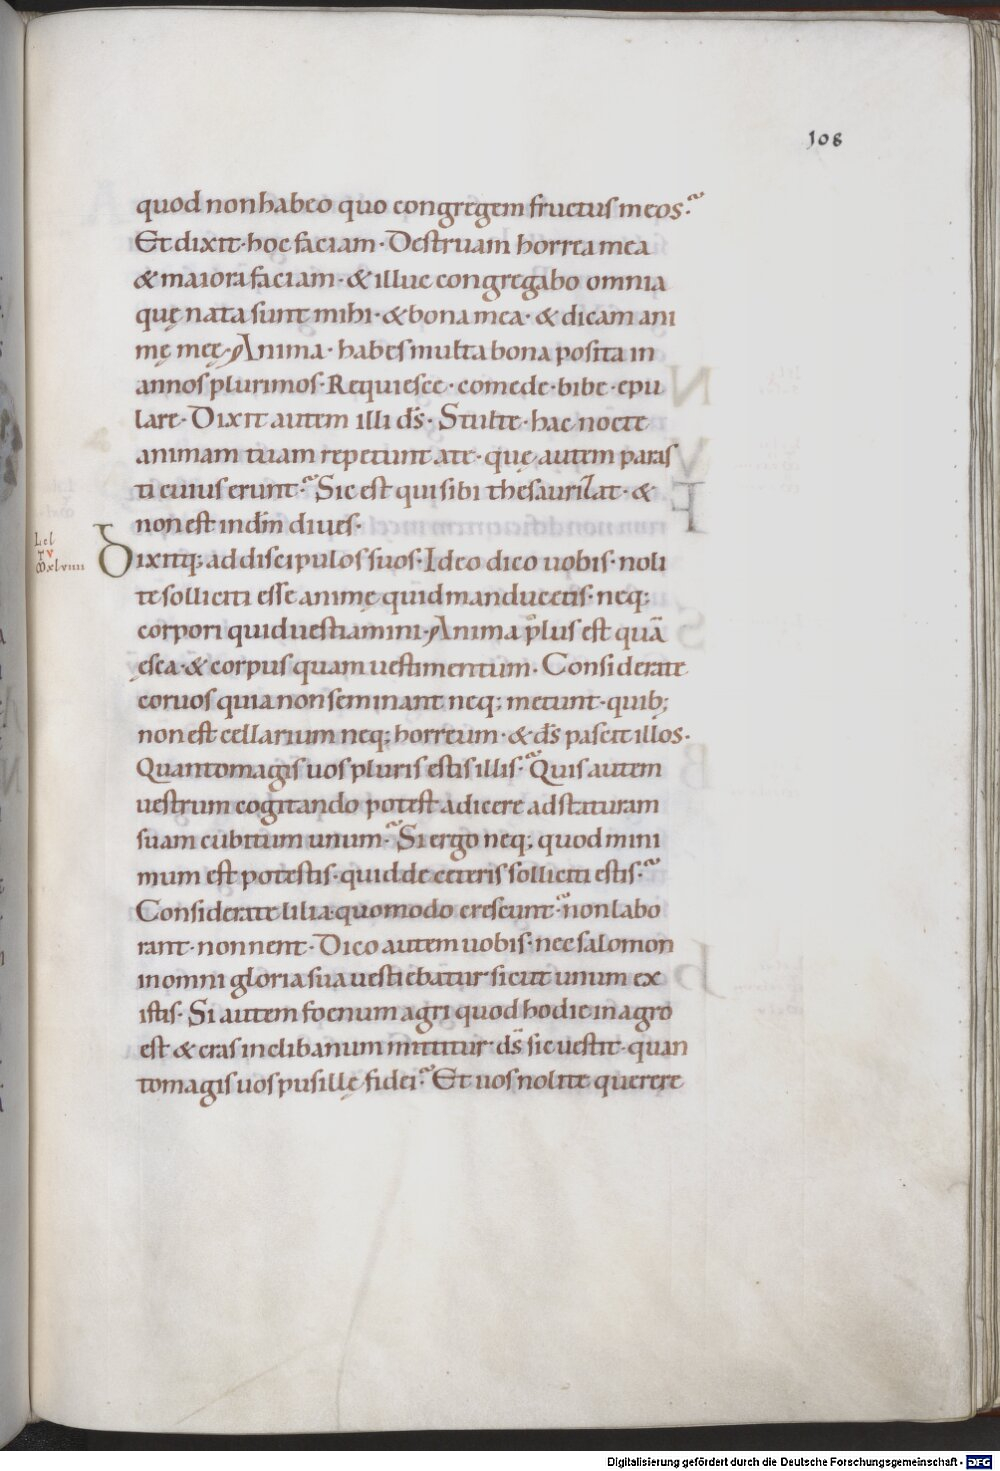 108
quod non habeo quo congregem fructus meos·
Et dixit· hoc faciam· Destruam horrea mea
& maiora faciam· & illuc congregabo omnia
quę nata sunt mihi· & bona mea· & dicam ani
mę meę· Anima· habes multa bona posita in
annos plurimos· Requiesce· comede· bibe· epu
lare· Dixit autem illi d̅s· Stulte· hac nocte
animam tuam repetunt a te· quę autem paras
ti cuius erunt· Sic est qui sibi thesaurizat· &
non est in d̅m diues·
Lc̅ l
T v
M̅ xlviiii
Dixitq; ad discipulos suos· Ideo dico uobis· noli
te solliciti esse animę quid manducetis· neq;
corpori quid uestiamini· Anima plus est quā
ęsca· & corpus quam uestimentum· Considerate
coruos quia non seminant neq; metunt· quib;
non est cellarium neq; horreum· & d̅s pascit illos·
Quanto magis uos pluris estis illis· Quis autem
uestrum cogitando potest adicere ad staturam
suam cubitum unum· Si ergo neq; quod mini
mum est potestis· quid de ceteris solliciti estis·
Considerate lilia quomodo crescunt· non labo
rant· non nent· Dico autem uobis· nec salomon
in omni gloria sua uestiebatur sicut unum ex
istis· Si autem foenum agri quod hodie in agro
est & cras in clibanum mittitur d̅s sic uestit· quan
to magis uos pusillę fidei· Et uos nolite querere
Digitalisierung gefördert durch die Deutsche Forschungsgemeinschaft - DFG